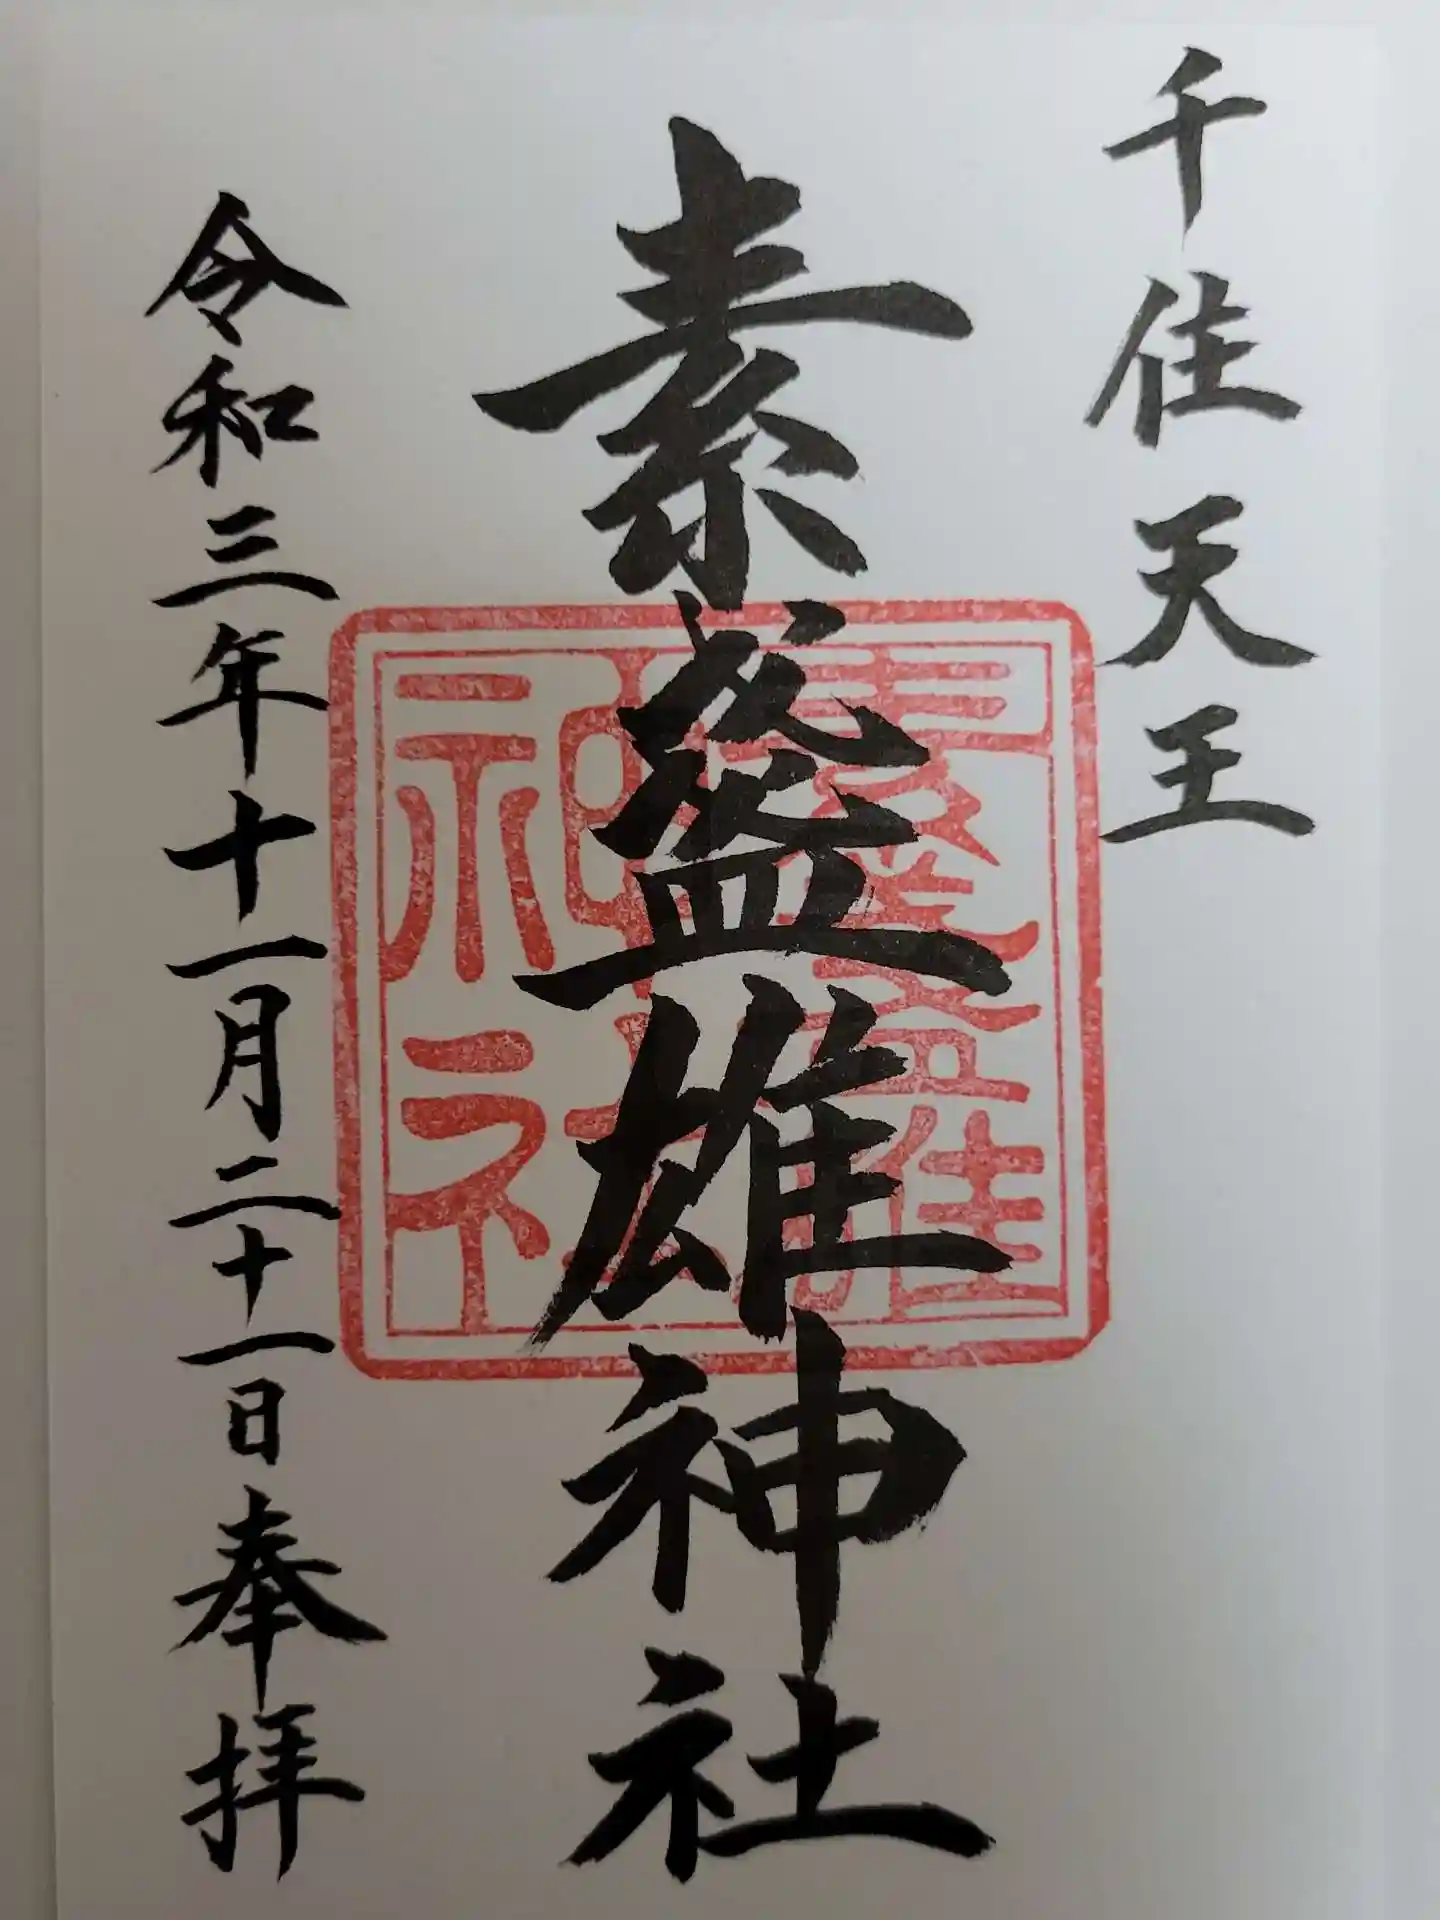 千住天王
素盞雄神社
素盞雄神社
令和三年十一月二十一日奉拝